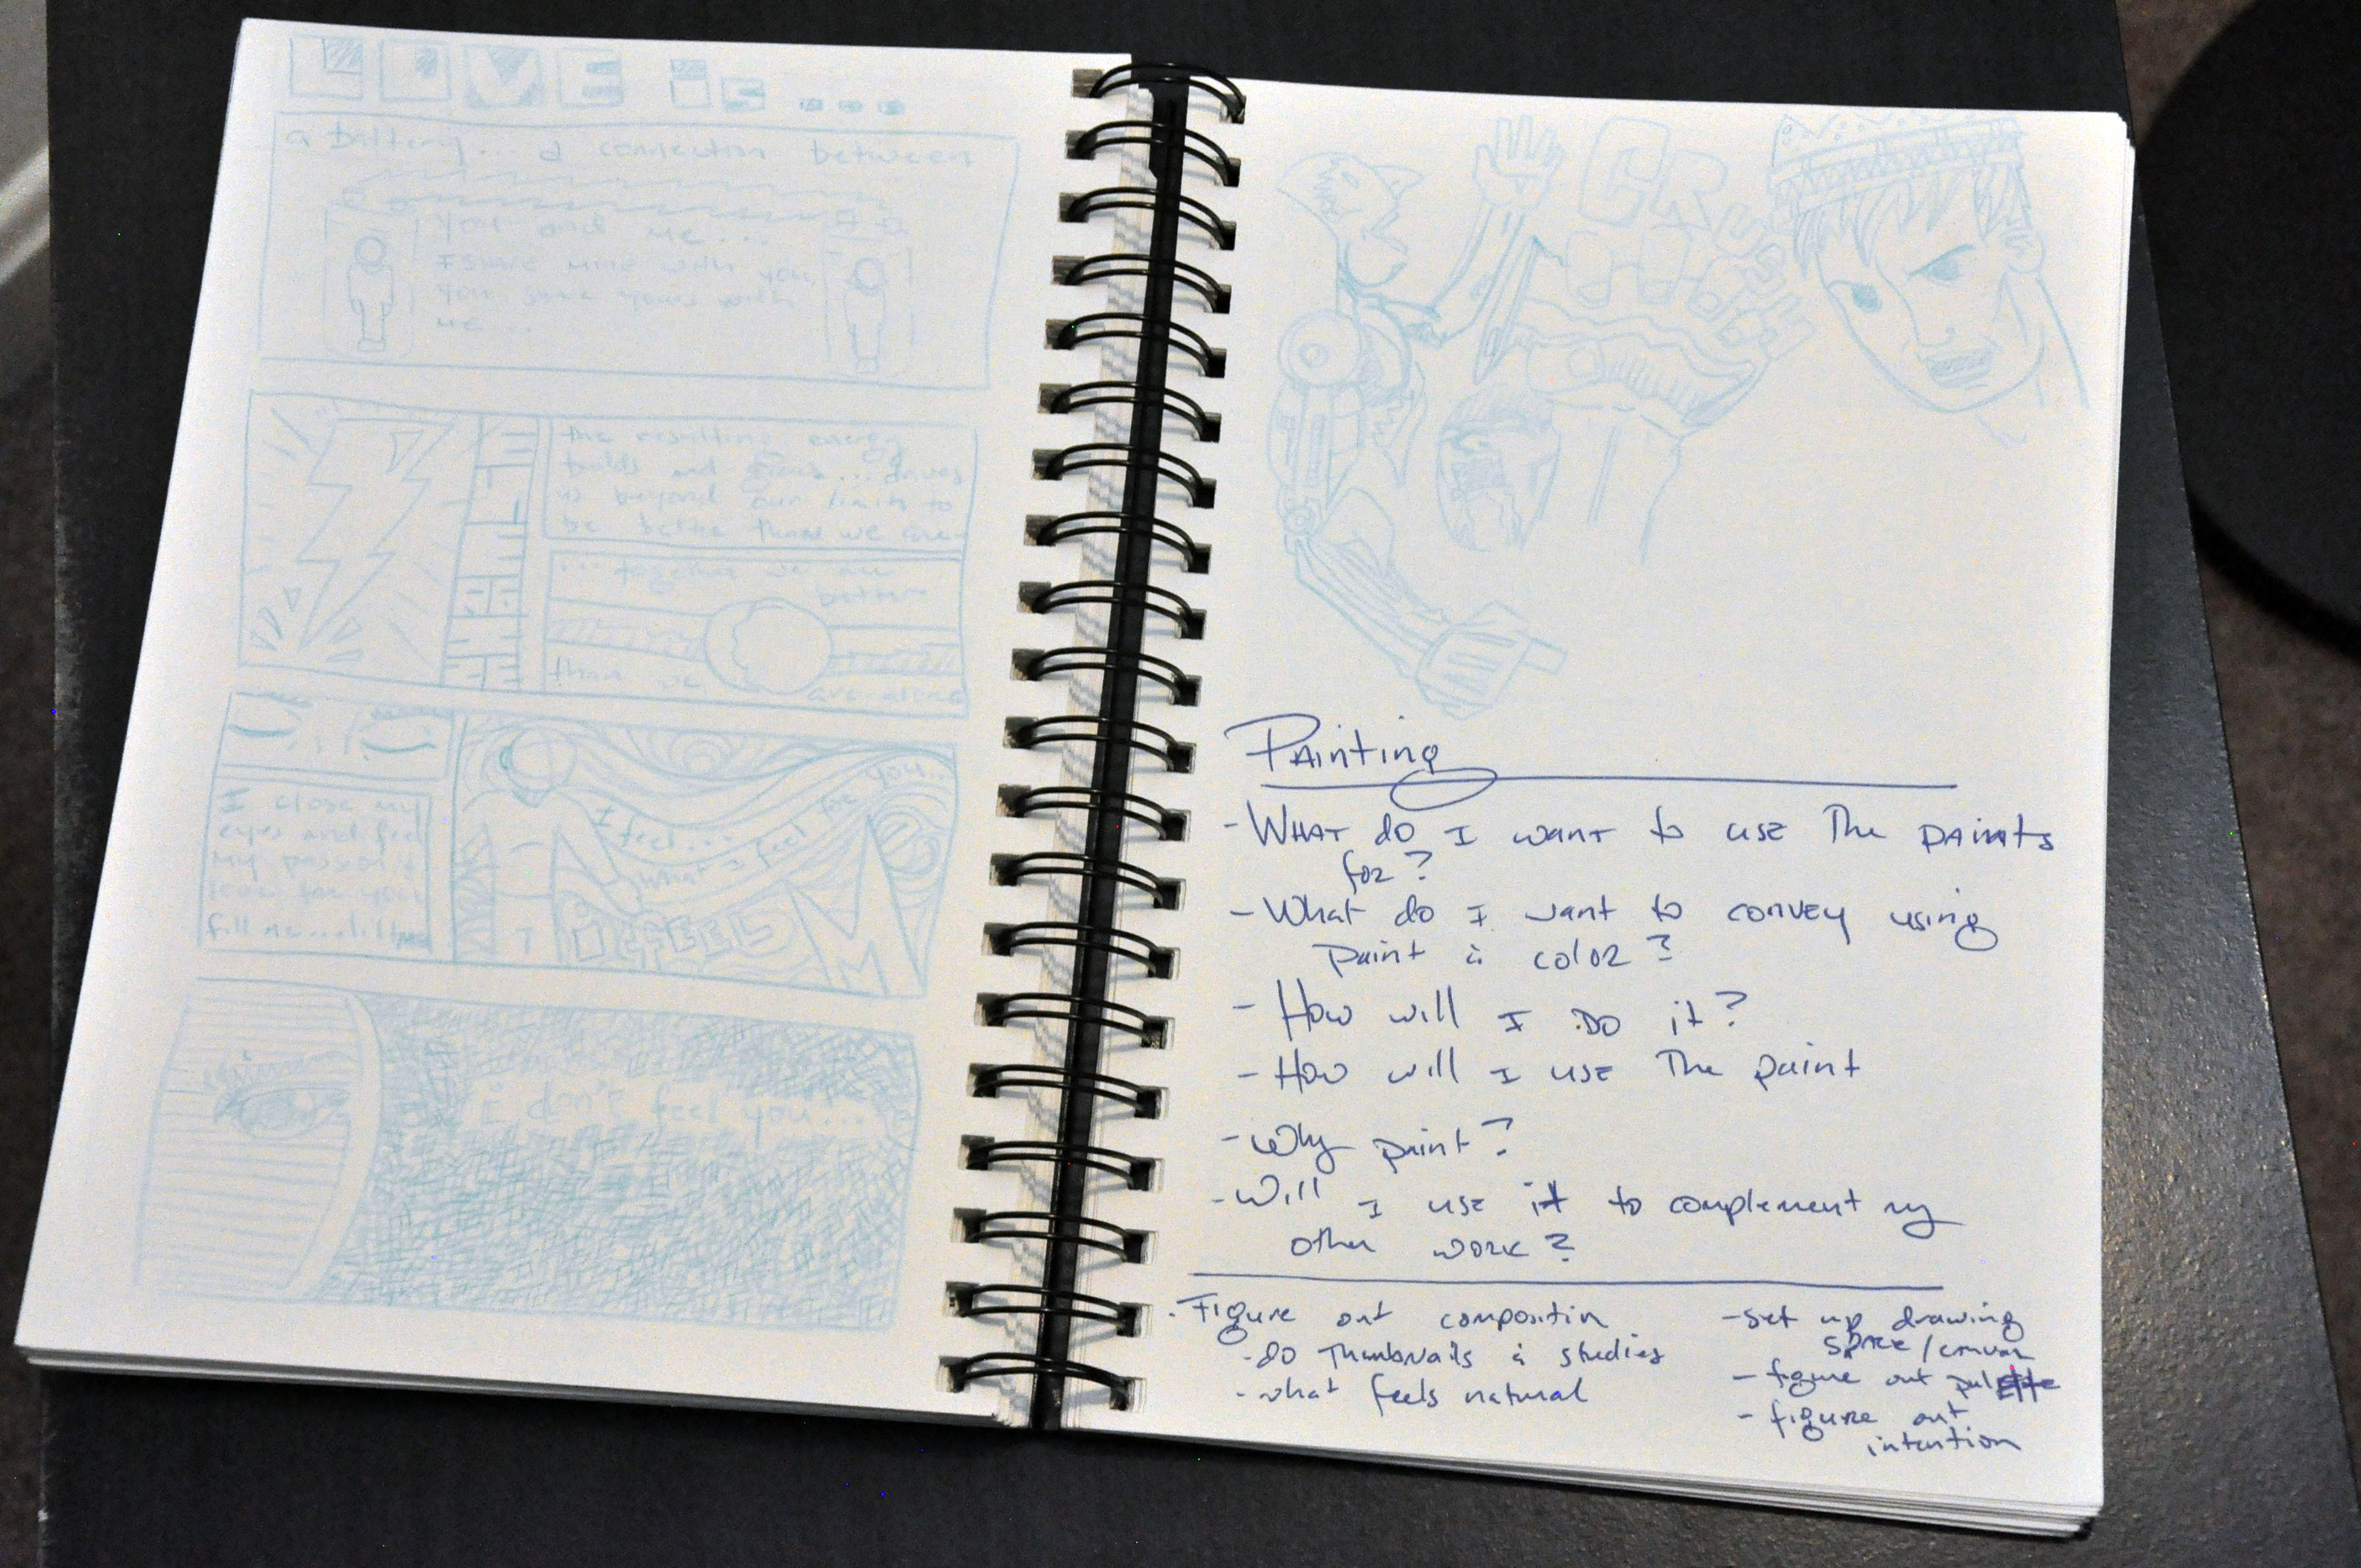 LOVE is ...
a battery... a connection between
you and me...
I share mine with you
you share yours with
me...
the resulting energy
builds and ... drives
us beyond our limits to
be better than we are
... together we are
better
than we are alone
I close my
eyes and feel
my passion
love for you
fill me
I feel...
what I feel for you...
it feels
i don't feel you...
CRUSH
Painting
- What do I want to use The paints
for?
- What do I want to convey using
paint & color?
- How will I Do it?
- How will I use The paint
- Why paint?
- Will I use it to complement my
other work?
- Figure out compositin
- do Thumbnails & studies
- what feels natural
- set up drawing
space/canvas
- figure out palette
- figure out
intention